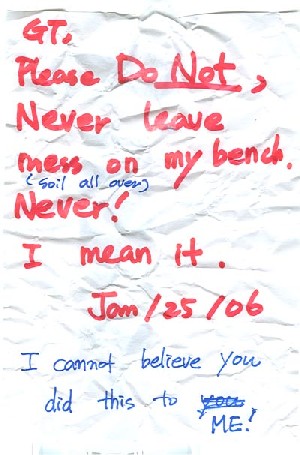 GT.
Please Do Not,
Never leave
mess on my bench.
(soil all over)
Never!
I mean it.
Jan/25/06
I cannot believe you
did this to you
ME!